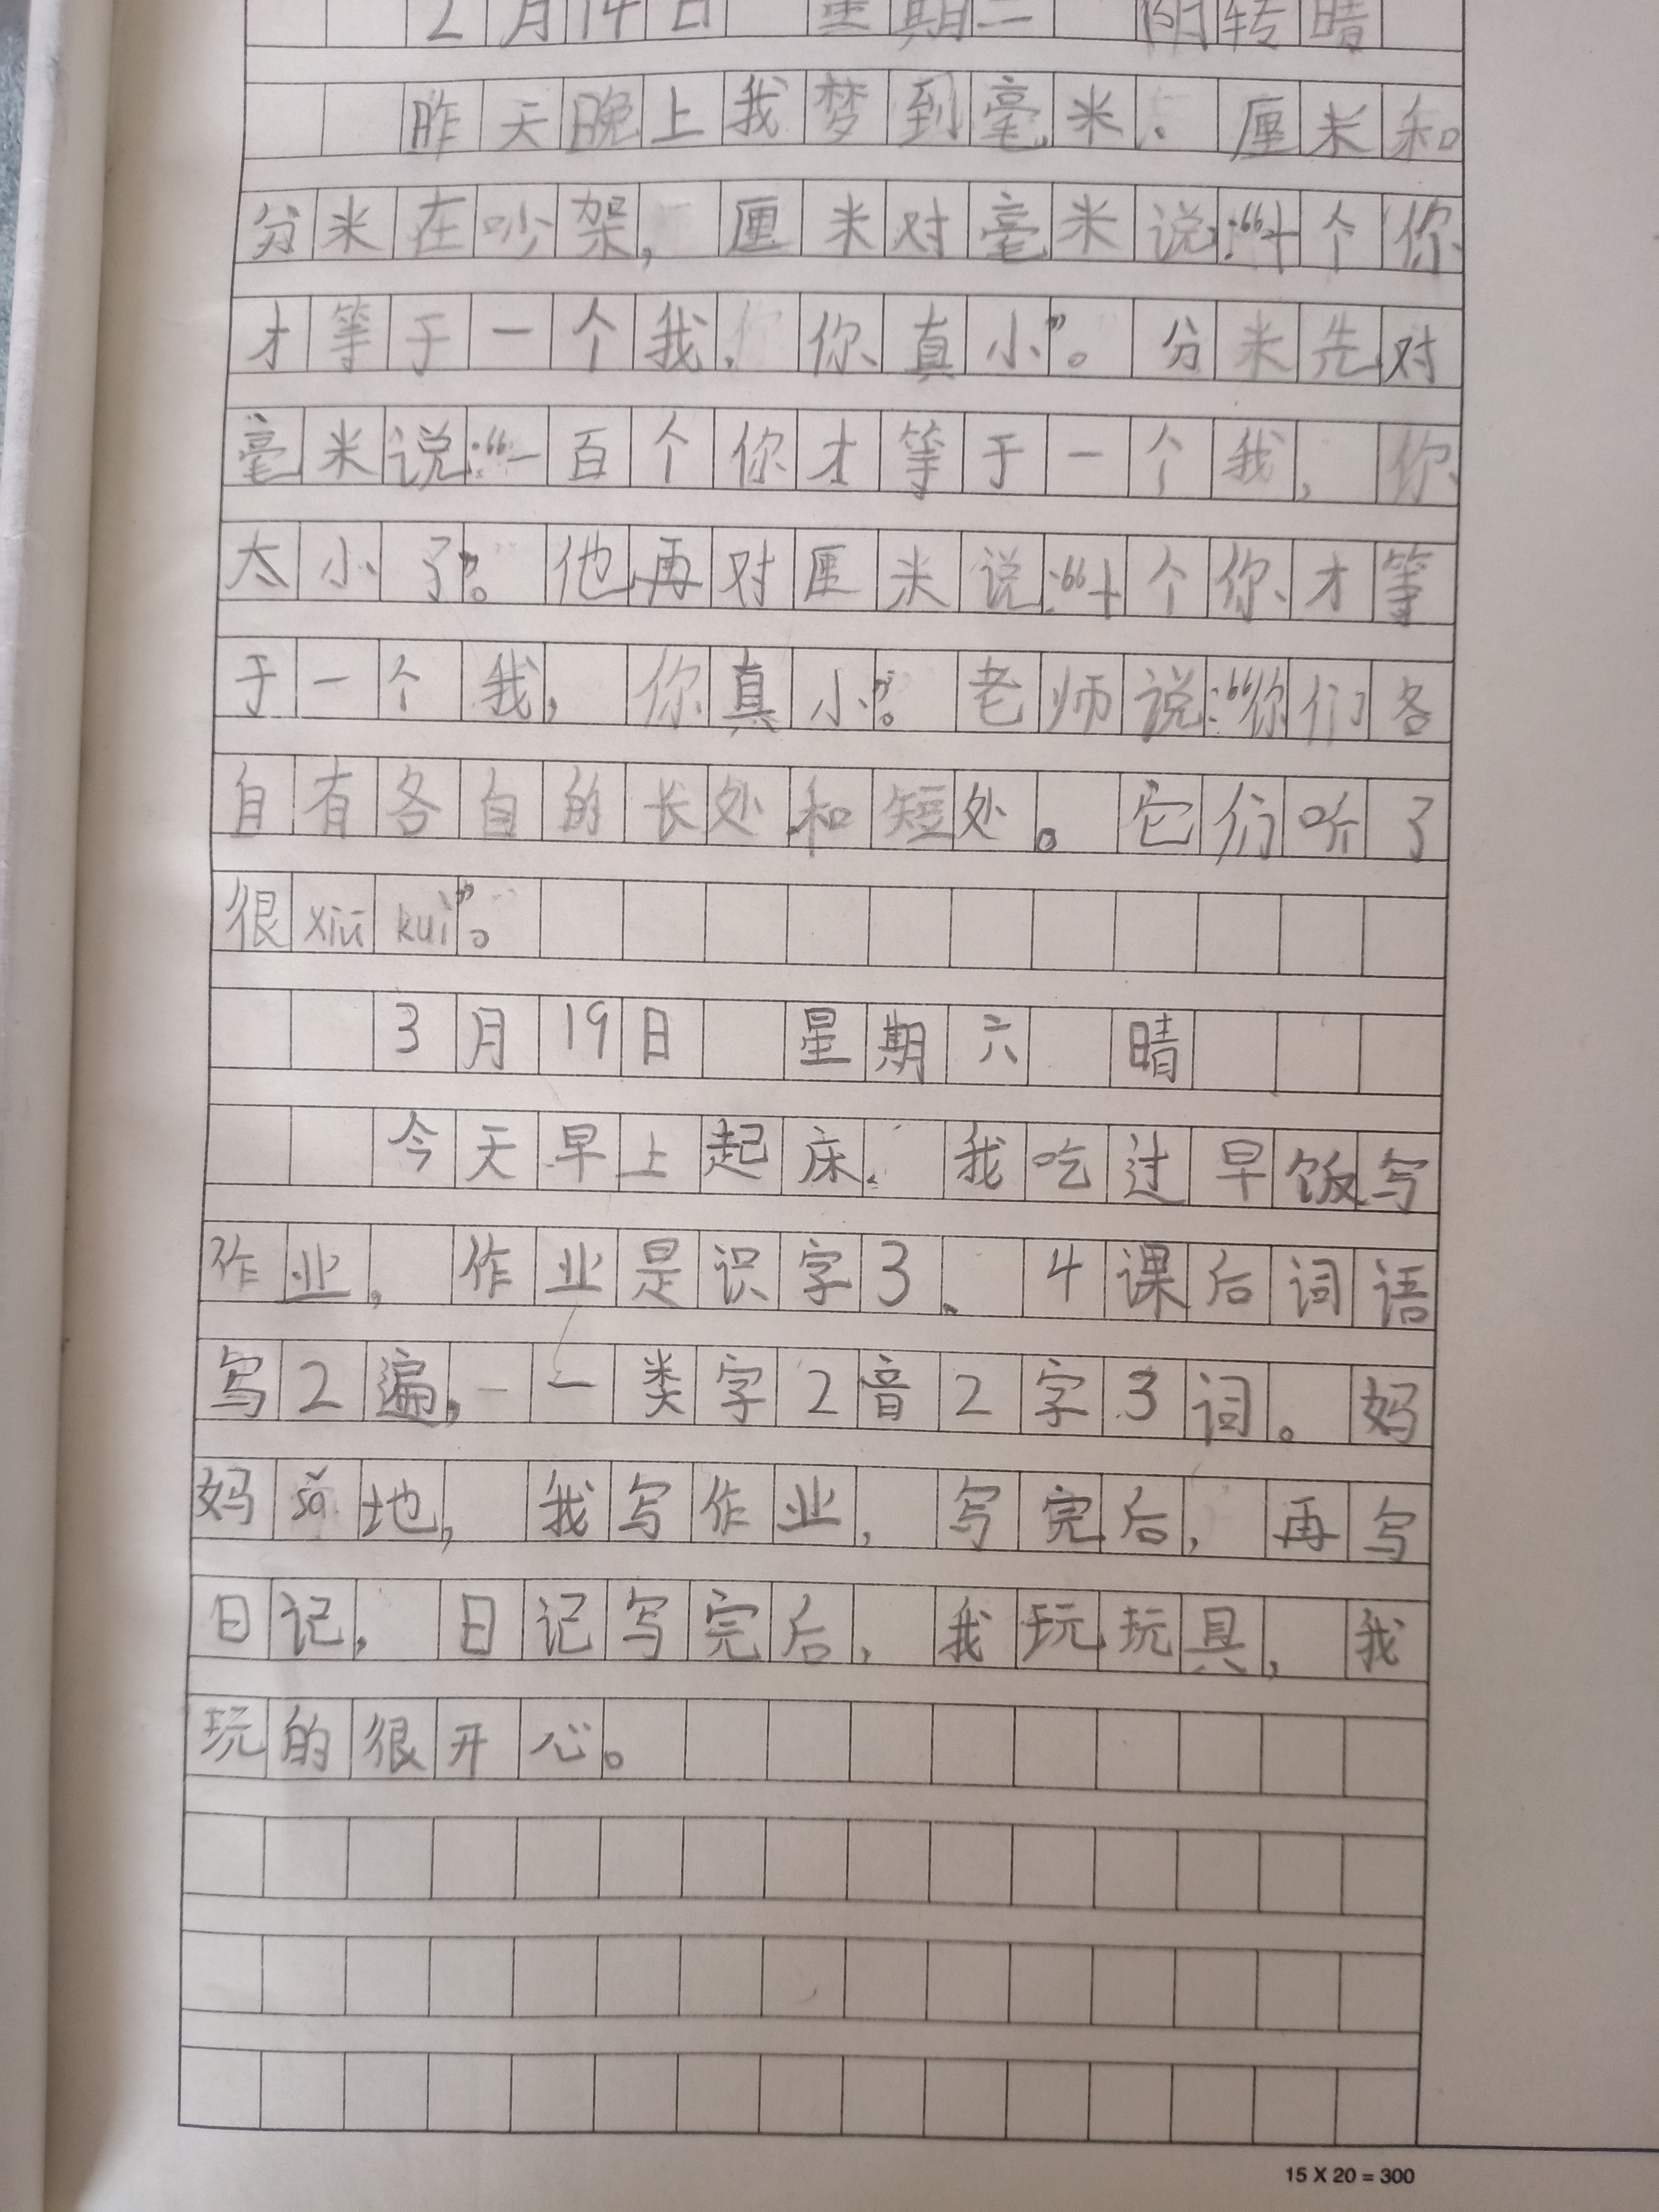 2月14日 星期二 阴转晴
昨天晚上我梦到毫米、厘米和
分米在吵架，厘米对毫米说：“十个你
才等于一个我，你真小”。分米先对
毫米说：“一百个你才等于一个我，你
太小了”。他再对厘米说：“十个你才等
于一个我，你真小”。老师说：“你们各
自有各自的长处和短处。它们听了
很xiū kuì”。
3月19日 星期六 晴
今天早上起床，我吃过早饭写
作业，作业是识字3、4课后词语
写2遍，一类字2音2字3词。妈
妈sǎ地，我写作业，写完后，再写
日记，日记写完后，我玩玩具，我
玩的很开心。
15 X 20 = 300